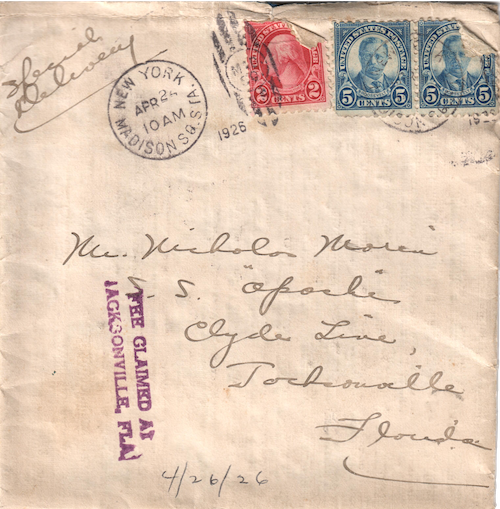 Special
Delivery
NEW YORK
MADISON SQ. STA.
APR 24
10 AM
1926
UNITED STATES POSTAGE
2 CENTS 2
UNITED STATES POSTAGE
5 CENTS 5
UNITED STATES POSTAGE
5 CENTS 5
Mr. Nicholas
S. S.
Clyde Line,
Jacksonville
Florida
FEE CLAIMED AT
JACKSONVILLE, FLA.
4/26/26